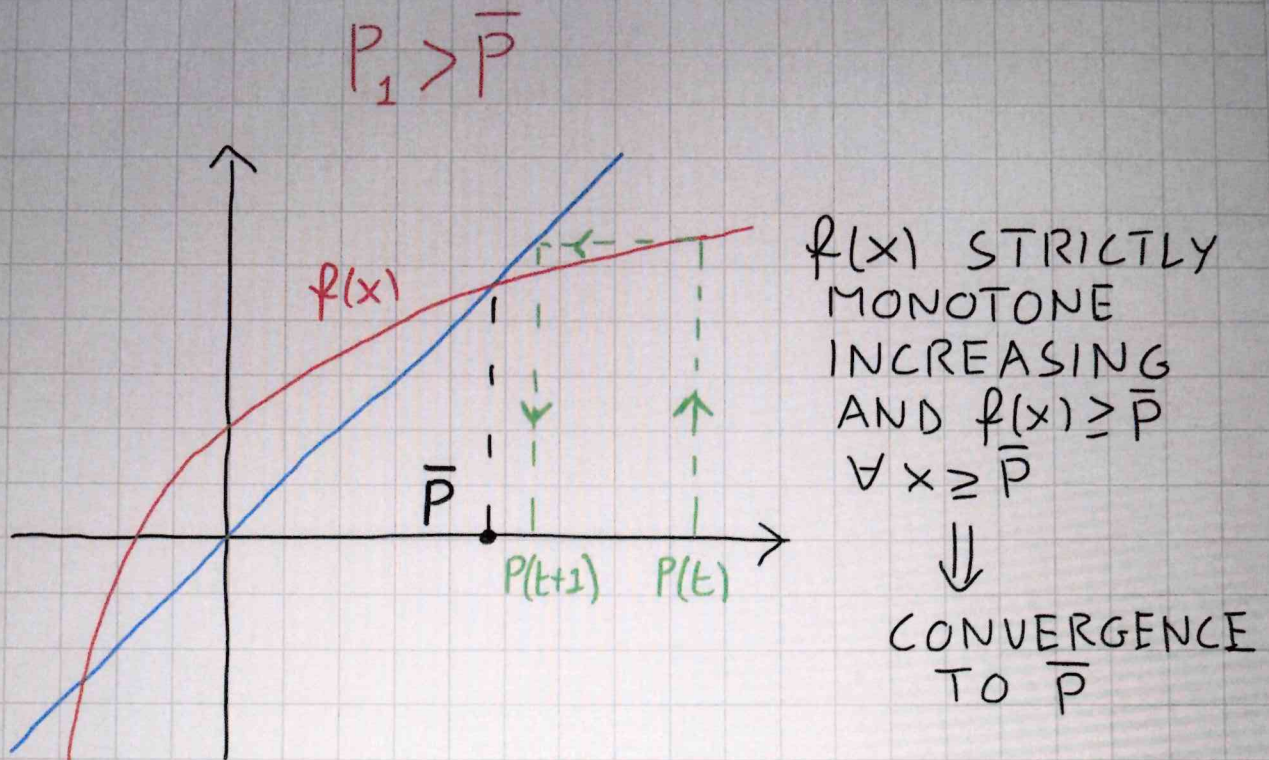 P₁ > P̅
f(x)
P̅
P(t+1)
P(t)
f(x) STRICTLY
MONOTONE
INCREASING
AND f(x) ≥ P̅
∀ x ≥ P̅
⇓
CONVERGENCE
TO P̅